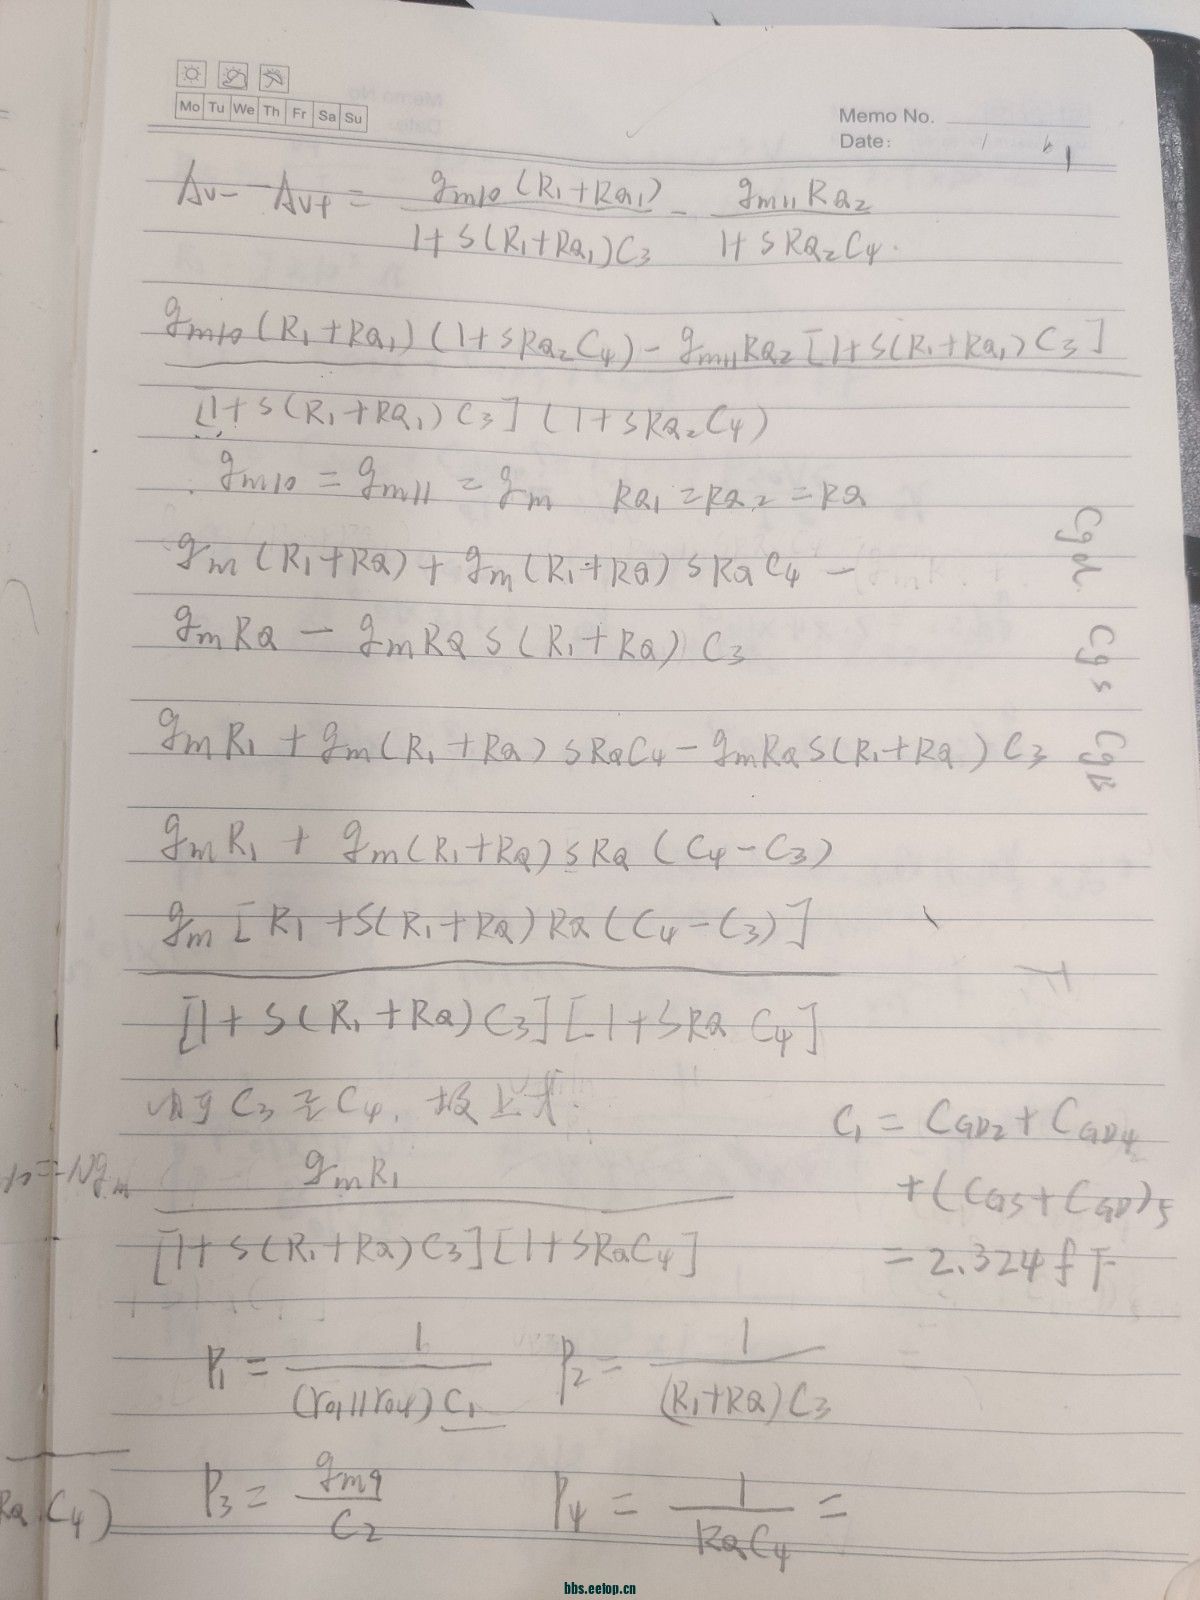 Mo Tu We Th Fr Sa Su
Memo No.
Date:
Av- - Av+ = gm10(R1+RQ1) / 1+S(R1+RQ1)C3 - gm11RQ2 / 1+SRQ2C4
gm10(R1+RQ1)(1+SRQ2C4) - gm11RQ2[1+S(R1+RQ1)C3]
[1+S(R1+RQ1)C3](1+SRQ2C4)
gm10 = gm11 = gm RQ1=RQ2=RQ
gm(R1+RQ) + gm(R1+RQ)SRQC4 -
gmRQ - gmRQS(R1+RQ)C3
gmR1 + gm(R1+RQ)SRQC4 - gmRQS(R1+RQ)C3
gmR1 + gm(R1+RQ)SRQ(C4-C3)
gm[R1+S(R1+RQ)RQ(C4-C3)]
[1+S(R1+RQ)C3][1+SRQC4]
C3 C4, 故上式:
gmR1
[1+S(R1+RQ)C3][1+SRQC4]
C1 = CGD2+CGD4
+(CGS+CGD)5
=2.324fF
P1 = 1 / (ro1||ro4)C1 P2 = 1 / (R1+RQ)C3
P3 = gm9 / C2 P4 = 1 / RQC4 =
Cgd Cgs CgB
=-Ngm
RQC4)
bbs.eetop.cn